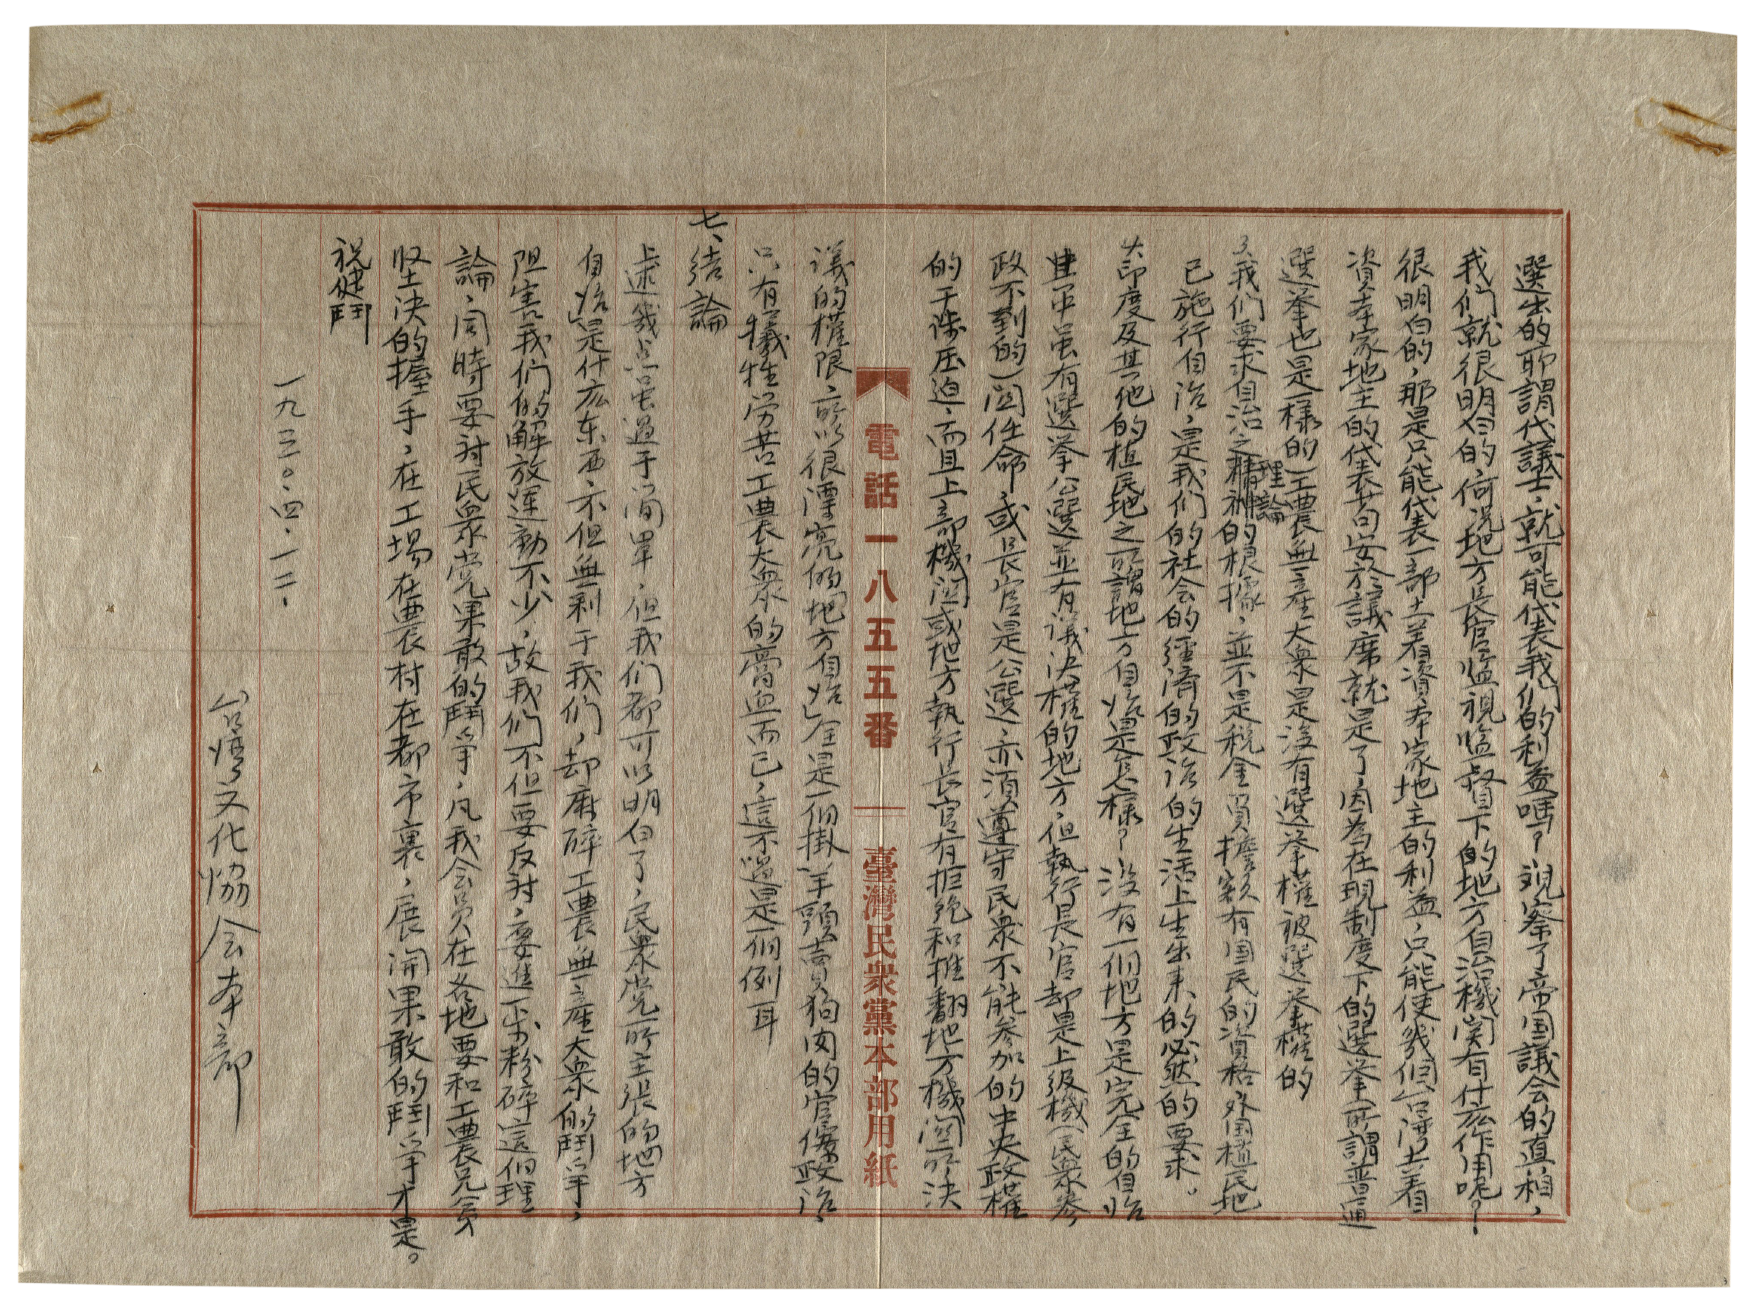 選出的所謂代議士，就可能代表我們的利益嗎？观察了帝国議会的直相，
我们就很明白的，何况地方長官监視监督下的地方自治機関有什広作用呢？！
很明白的，那是只能代表一部土着資本家地主的利益，只能使幾個台湾土着
資本家地主的代表苟安於議席就是了，因為在現制度下的選挙所謂普通
選挙也是一樣的）工農無産大衆是没有選挙權被選挙權的
3、我们要求自治之理論的根據，並不是税金負擔額有国民的資格外国植民地
已施行自治，是我们的社会的經済的政治的生活上生出来的必然的要求。
大印度及其他的植民地之所謂地方自治是怎樣？没有一個地方是完全的自治
其中虽有選挙公選並有議决權的地方，但執行長官却是上級機（民衆參
政不到的）関任命，或長官是公選，亦須遵守民衆不能參加的中央政權
的干涉压迫，而且上部機関或地方執行長官有拒絶和推翻地方機関所决
議的權限，所以很漂亮的「地方自治」全是一個掛羊頭賣狗肉的官僚政治，
只有犠牲労苦工農大衆的膏血而已，這不過是一個例耳
七、结論
上述幾点虽過于简單，但我们都可以明白了，民衆党所主張的「地方
自治」是什広东西，不但無利于我们，却麻碎工農無産大衆的鬥爭，
阻害我们的解放運動不少，故我们不但要反対，要進一步粉碎這個理
論，同時要対民衆党果敢的鬥爭，凡我会員在各地要和工農兄弟
坚决的握手，在工場在農村在都市裏，展開果敢的鬥爭才是。
祝健鬥
一九三〇．四．一二．
台湾文化協会本部
電話一八五五番
臺灣民衆黨本部用紙